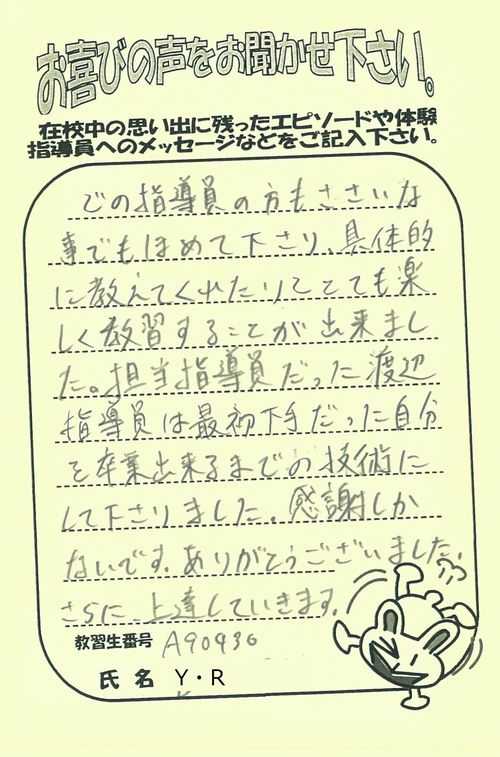 お喜びの声をお聞かせ下さい。
在校中の思い出に残ったエピソードや体験
指導員へのメッセージなどをご記入下さい。
どの指導員の方もささいな
事でもほめて下さり、具体的
に教えてくれたりしとても楽
しく教習することが出来まし
た。担当指導員だった渡辺
指導員は最初下手だった自分
を卒業出来るまでの技術に
して下さりました。感謝しか
ないです。ありがとうございました。
さらに、上達していきます。
教習生番号 A90936
氏名 Y・R